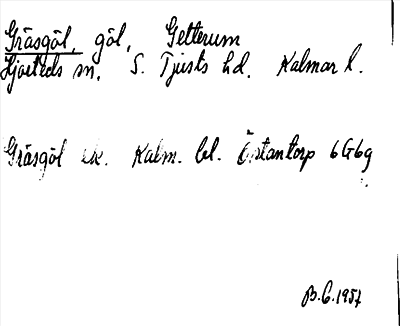 Gräsgöl, göl, Getterum
Hjorteds sn. S. Tjusts hd. Kalmar l.
Gräsgöl ek. Kalm. bl. Östantorp 6G6g
B.C. 1957